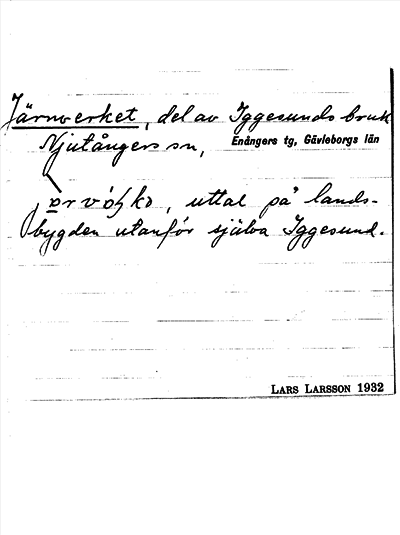 Järnverket, del av Iggesunds bruk
Njutångers sn, Enångers tg, Gävleborgs län
uttal på lands-
bygden utanför själva Iggesund.
LARS LARSSON 1932